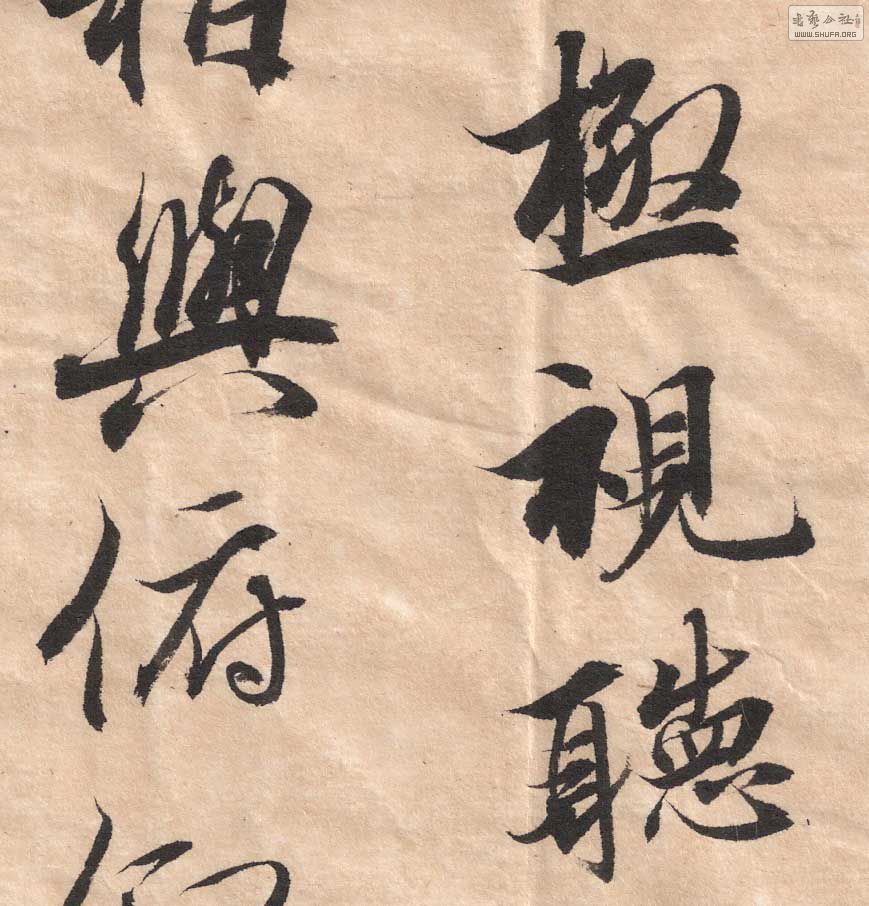 極視聽
相與俯仰
書藝公社
WWW.SHUFA.ORG